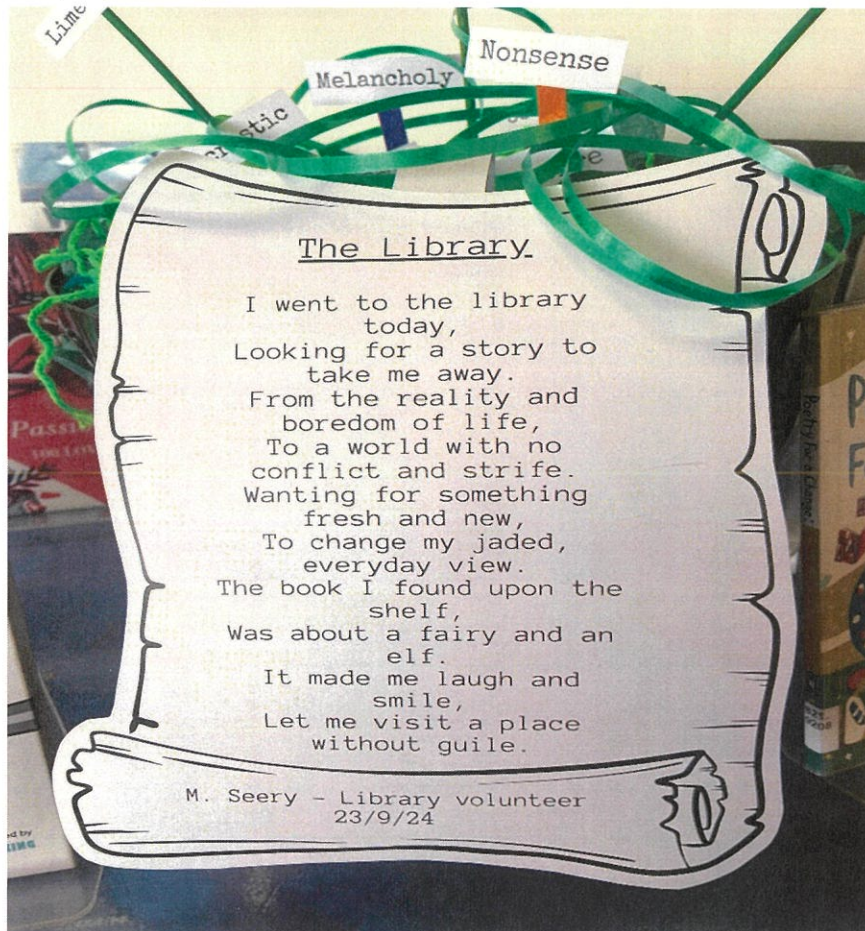 Lime
Melancholy
Nonsense
The Library
I went to the library
today,
Looking for a story to
take me away.
From the reality and
boredom of life,
To a world with no
conflict and strife.
Wanting for something
fresh and new,
To change my jaded,
everyday view.
The book I found upon the
shelf,
Was about a fairy and an
elf.
It made me laugh and
smile,
Let me visit a place
without guile.
M. Seery - Library volunteer
23/9/24
Poetry for a Change